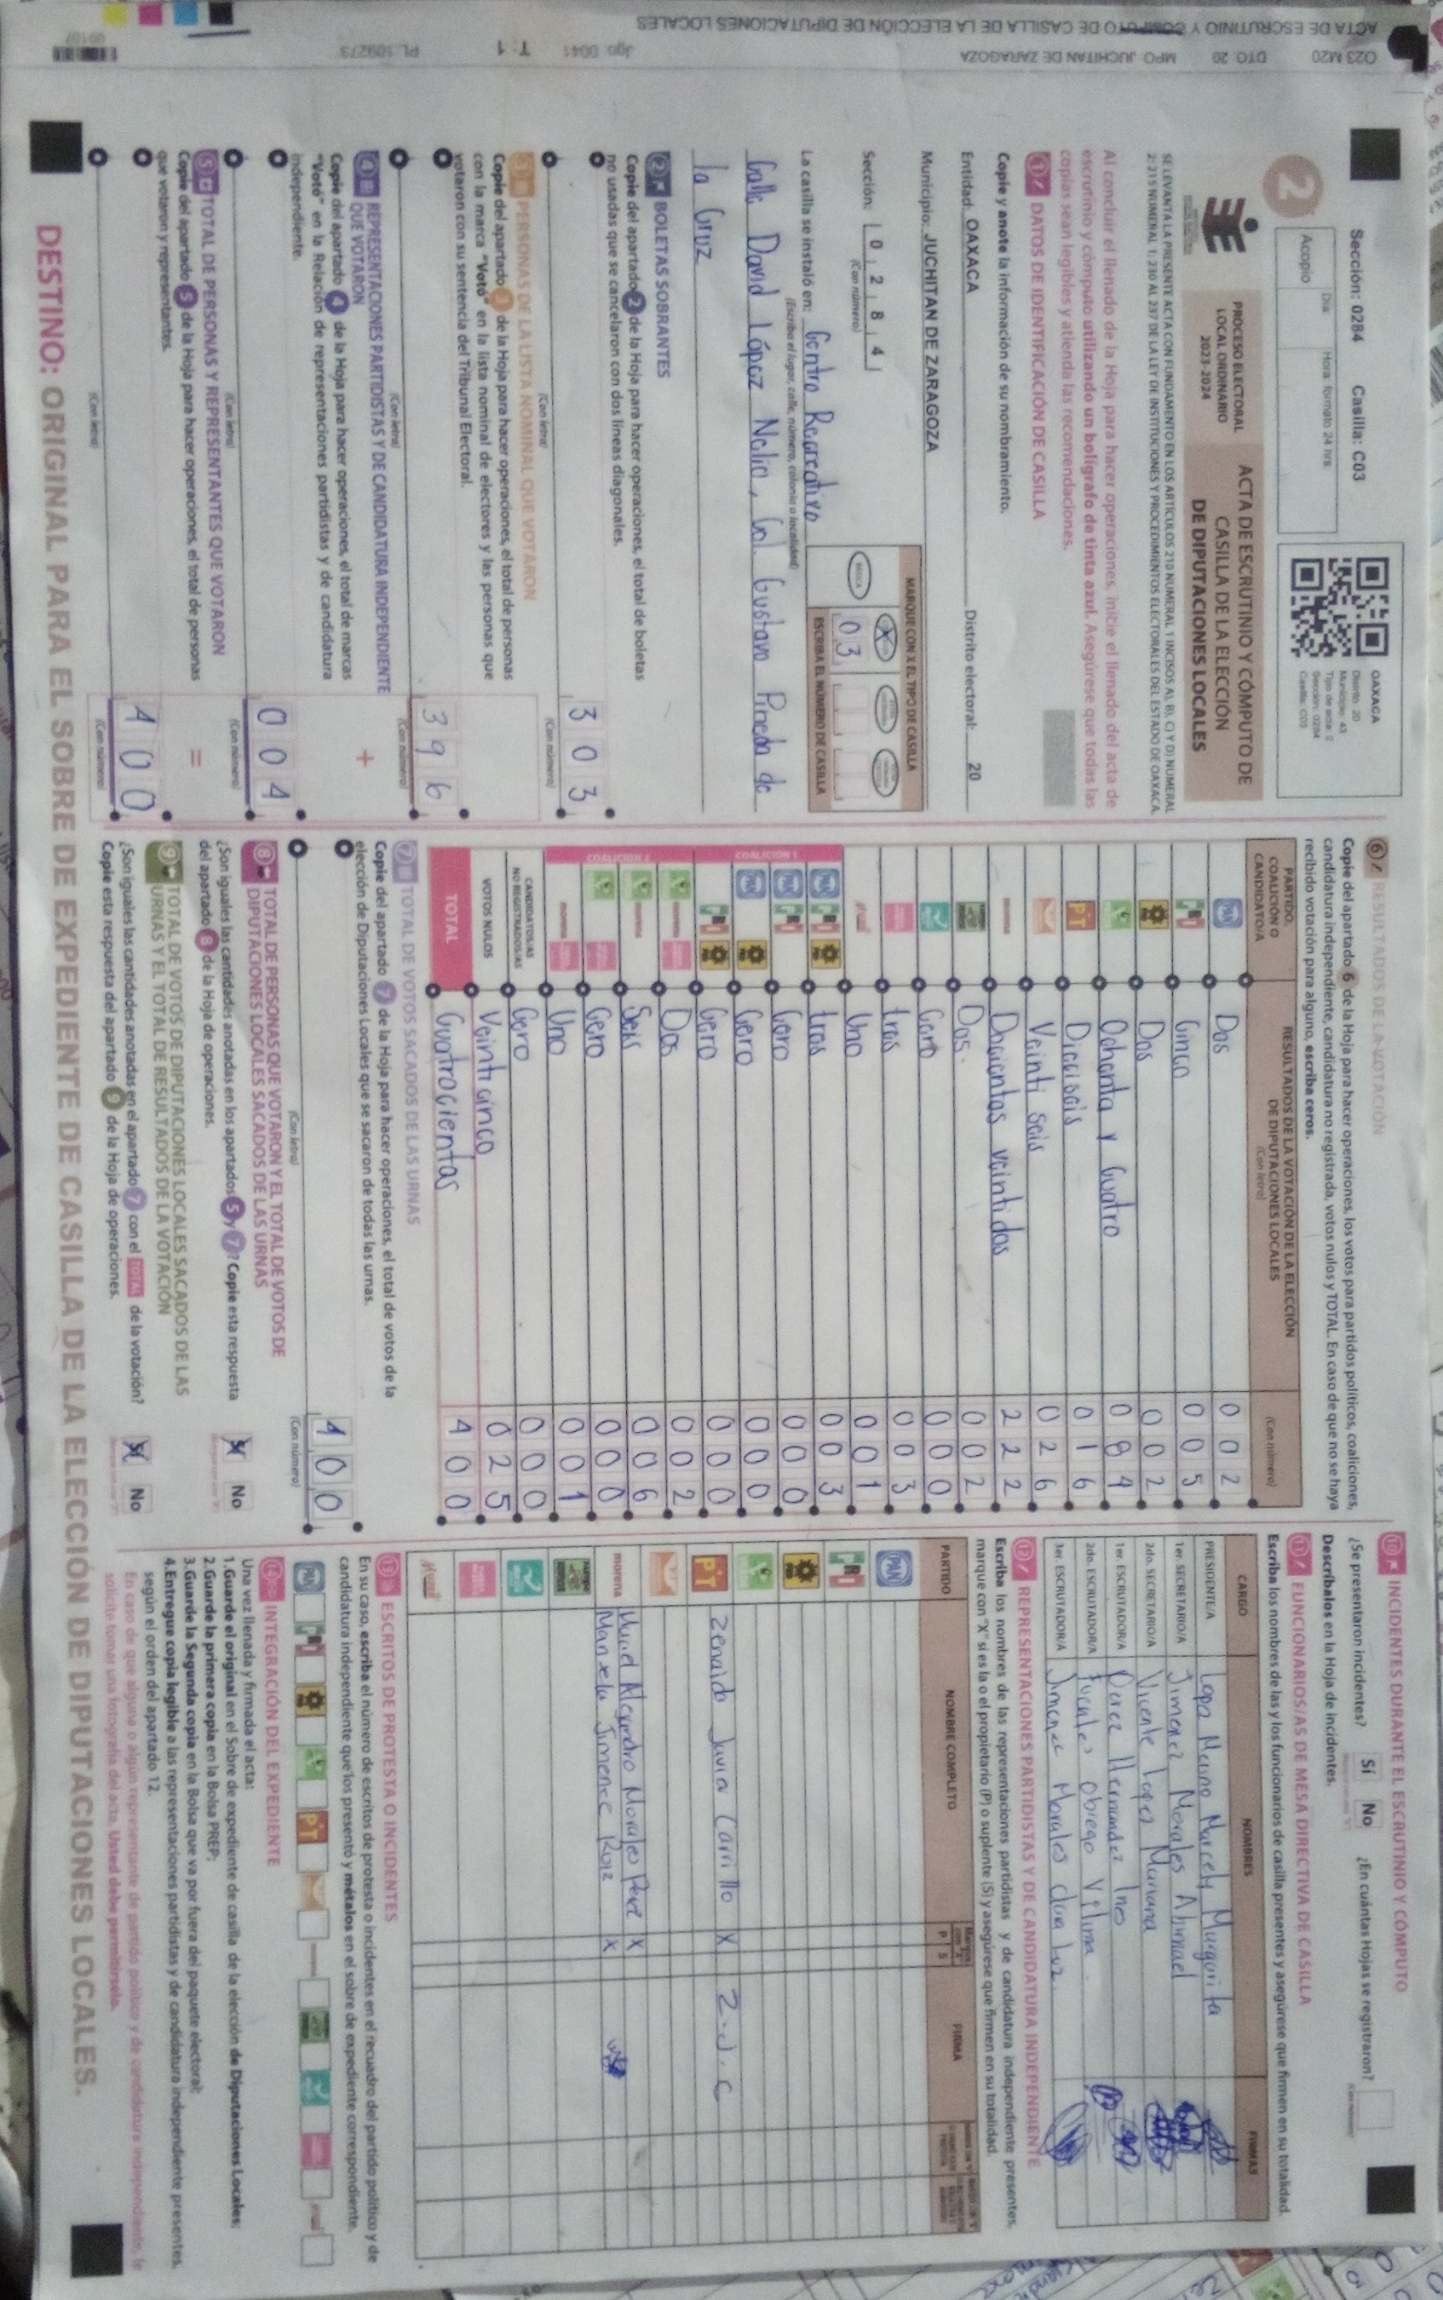 Sección: 0284 Casilla: C03
Día Hora: formato 24 hrs.
2
Acopio
OAXACA
Distrito: 20
Municipio: 43
Tipo de acta: 2
Sección: 0284
Casilla: C03
PROCESO ELECTORAL
LOCAL ORDINARIO
2023-2024
ACTA DE ESCRUTINIO Y CÓMPUTO DE
CASILLA DE LA ELECCIÓN
DE DIPUTACIONES LOCALES
SE LEVANTA LA PRESENTE ACTA CON FUNDAMENTO EN LOS ARTÍCULOS 210 NUMERAL 1 INCISOS A), B), C) Y D) NUMERAL
2; 215 NUMERAL 1; 230 AL 237 DE LA LEY DE INSTITUCIONES Y PROCEDIMIENTOS ELECTORALES DEL ESTADO DE OAXACA.
Al concluir el llenado de la Hoja para hacer operaciones, inicie el llenado del acta de
escrutinio y cómputo utilizando un bolígrafo de tinta azul. Asegúrese que todas las
copias sean legibles y atienda las recomendaciones.
1 DATOS DE IDENTIFICACIÓN DE CASILLA
Copie y anote la información de su nombramiento.
Entidad: OAXACA Distrito electoral: 20
Municipio: JUCHITAN DE ZARAGOZA
Sección: 0 2 8 4
(Con número)
MARQUE CON X EL TIPO DE CASILLA
BÁSICA X
03
ESCRIBA EL NÚMERO DE CASILLA
La casilla se instaló en: Centro Recreativo
(Escriba el lugar, calle, número, colonia o localidad)
Calle David López Nelio, Col. Gustavo Pineda de
la Cruz
2 BOLETAS SOBRANTES
Copie del apartado 2 de la Hoja para hacer operaciones, el total de boletas
no usadas que se cancelaron con dos líneas diagonales.
303
(Con letra) (Con número)
3 PERSONAS DE LA LISTA NOMINAL QUE VOTARON
Copie del apartado 3 de la Hoja para hacer operaciones, el total de personas
con la marca "Votó" en la lista nominal de electores y las personas que
votaron con su sentencia del Tribunal Electoral.
396
(Con letra) (Con número)
4 REPRESENTACIONES PARTIDISTAS Y DE CANDIDATURA INDEPENDIENTE
QUE VOTARON
+
Copie del apartado 4 de la Hoja para hacer operaciones, el total de marcas
"Votó" en la Relación de representaciones partidistas y de candidatura
independiente.
004
(Con letra) (Con número)
5 TOTAL DE PERSONAS Y REPRESENTANTES QUE VOTARON
=
Copie del apartado 5 de la Hoja para hacer operaciones, el total de personas
que votaron y representantes.
400
(Con letra) (Con número)
6 RESULTADOS DE LA VOTACIÓN
Copie del apartado 6 de la Hoja para hacer operaciones, los votos para partidos políticos, coaliciones,
candidatura independiente, candidatura no registrada, votos nulos y TOTAL. En caso de que no se haya
recibido votación para alguno, escriba ceros.
PARTIDO,
COALICIÓN O
CANDIDATO/A
RESULTADOS DE LA VOTACIÓN DE LA ELECCIÓN
DE DIPUTACIONES LOCALES
(Con letra) (Con número)
PAN Dos 002
PRI Cinco 005
PRD Dos 002
Ochenta y Cuatro 084
PT Dieciseis 016
Veinti seis 026
morena Docientos veintidos 222
Dos. 002
Cero 000
tres 003
Uno 001
COALICIÓN 1
PAN PRI PRD tres 003
PAN PRI Cero 000
PAN PRD Cero 000
PRI PRD Cero 000
COALICIÓN 2
morena Dos 002
morena Seis 006
Cero 000
morena Uno 001
CANDIDATOS/AS
NO REGISTRADOS/AS Cero 000
VOTOS NULOS Veinti cinco 025
TOTAL Cuatrocientos 400
7 TOTAL DE VOTOS SACADOS DE LAS URNAS
Copie del apartado 7 de la Hoja para hacer operaciones, el total de votos de la
elección de Diputaciones Locales que se sacaron de todas las urnas.
400
(Con letra) (Con número)
8 TOTAL DE PERSONAS QUE VOTARON Y EL TOTAL DE VOTOS DE
DIPUTACIONES LOCALES SACADOS DE LAS URNAS
¿Son iguales las cantidades anotadas en los apartados 5 y 7? Copie esta respuesta
del apartado 8 de la Hoja de operaciones.
Sí No
9 TOTAL DE VOTOS DE DIPUTACIONES LOCALES SACADOS DE LAS
URNAS Y EL TOTAL DE RESULTADOS DE LA VOTACIÓN
¿Son iguales las cantidades anotadas en el apartado 7 con el TOTAL de la votación?
Copie esta respuesta del apartado 9 de la Hoja de operaciones.
Sí No
10 INCIDENTES DURANTE EL ESCRUTINIO Y CÓMPUTO
¿Se presentaron incidentes? Sí No ¿En cuántas Hojas se registraron?
Descríbalos en la Hoja de incidentes.
11 FUNCIONARIOS/AS DE MESA DIRECTIVA DE CASILLA
Escriba los nombres de las y los funcionarios de casilla presentes y asegúrese que firmen en su totalidad.
CARGO NOMBRES FIRMAS
PRESIDENTE/A Margarita
1er. SECRETARIO/A Jimenez Morales Abinael
2do. SECRETARIO/A Vicente Lopez Mariana
1er. ESCRUTADOR/A Perez Hernandez Ines
2do. ESCRUTADOR/A Vilma
3er. ESCRUTADOR/A Jimenez Morales Luz
12 REPRESENTACIONES PARTIDISTAS Y DE CANDIDATURA INDEPENDIENTE
Escriba los nombres de las representaciones partidistas y de candidatura independiente presentes,
marque con "X" si es la o el propietario (P) o suplente (S) y asegúrese que firmen en su totalidad.
PARTIDO NOMBRE COMPLETO P S FIRMA
PAN
PRI
PRD
PT Zenaido Javier Carrillo X Z.J.C
morena Alejandro Morales Perez X
Jimenez Ruiz X
13 ESCRITOS DE PROTESTA O INCIDENTES
En su caso, escriba el número de escritos de protesta o incidentes en el recuadro del partido político y de
candidatura independiente que los presentó y métalos en el sobre de expediente correspondiente.
PAN PRI PRD PT morena
14 INTEGRACIÓN DEL EXPEDIENTE
Una vez llenada y firmada el acta:
1.Guarde el original en el Sobre de expediente de casilla de la elección de Diputaciones Locales;
2.Guarde la primera copia en la Bolsa PREP;
3.Guarde la Segunda copia en la Bolsa que va por fuera del paquete electoral;
4.Entregue copia legible a las representaciones partidistas y de candidatura independiente presentes,
según el orden del apartado 12.
En caso de que alguna o algún representante de partido político y de candidatura independiente, le
solicite tomar una fotografía del acta. Usted debe permitírselo.
DESTINO: ORIGINAL PARA EL SOBRE DE EXPEDIENTE DE CASILLA DE LA ELECCIÓN DE DIPUTACIONES LOCALES.
O23 M20 DTO 20 MPO JUCHITAN DE ZARAGOZA
ACTA DE ESCRUTINIO Y COMPUTO DE CASILLA DE LA ELECCIÓN DE DIPUTACIONES LOCALES
Jgo 0041 T: 1 PL:109273